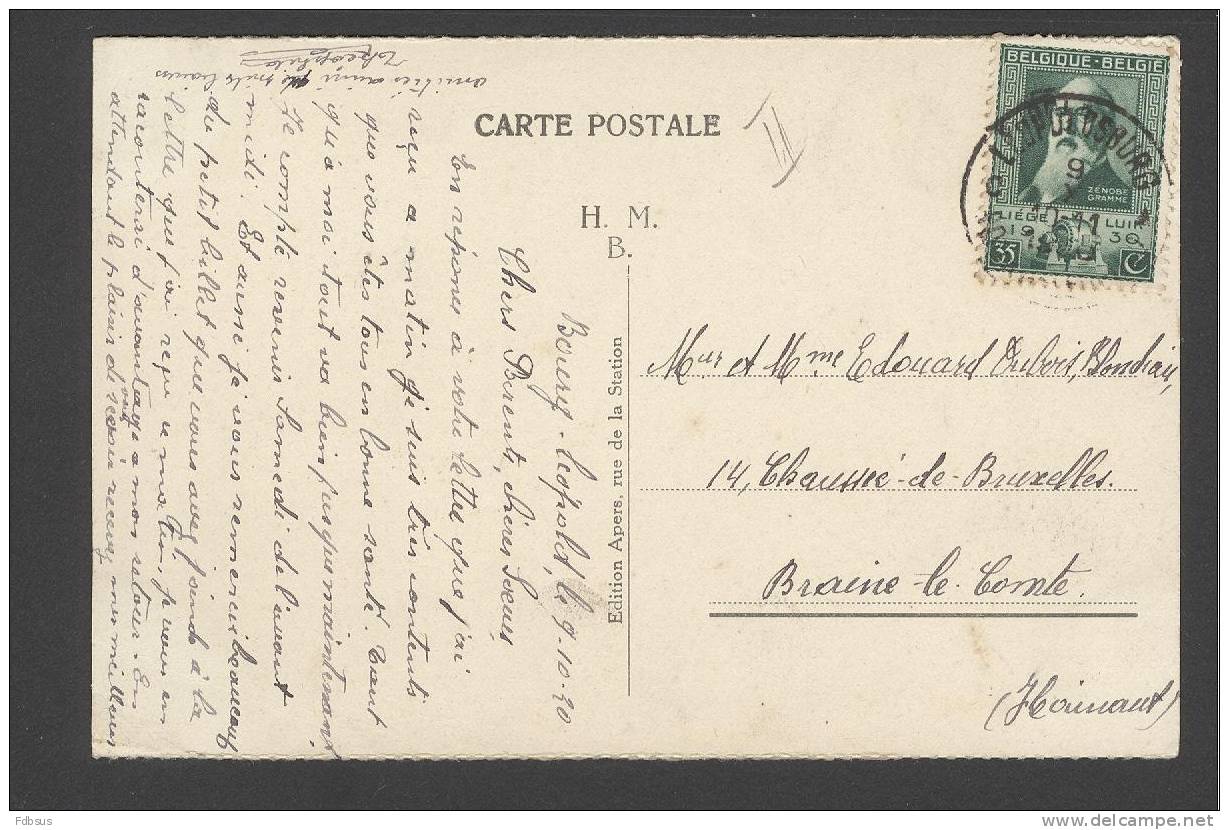 BELGIQUE-BELGIË
ZÉNOBE
GRAMME
LIÉGE LUIK
19 30
35 C
LEOPOLDSBURG
9
CARTE POSTALE
II
H. M.
B.
Edition Apers, rue de la Station
Mur et Mme Edouard Dubois, Blondiau,
14, Chaussée-de-Bruxelles.
Braine-le-Comte.
(Hainaut)
Bourg-Léopold, le 9-10-30
Chers Parents, chères Soeurs,
En réponse à votre lettre que j'ai
reçu a matin je suis très contents
que vous êtes tous en bonne santé. Tant
qu'a moi tout va bien jusque maintenant
Je compte revenir Samedi de l'avant
midi. Et aussi je vous remercie beaucoup
du petit billet que vous avez joint à la
lettre que j'ai reçu ce matin, je vous en
raconterai d'avantage a mon retour. En
attendant le plaisir de vous revoir recevez mes meilleurs
amitiés ainsi que
Fdbsus
delcampe.net